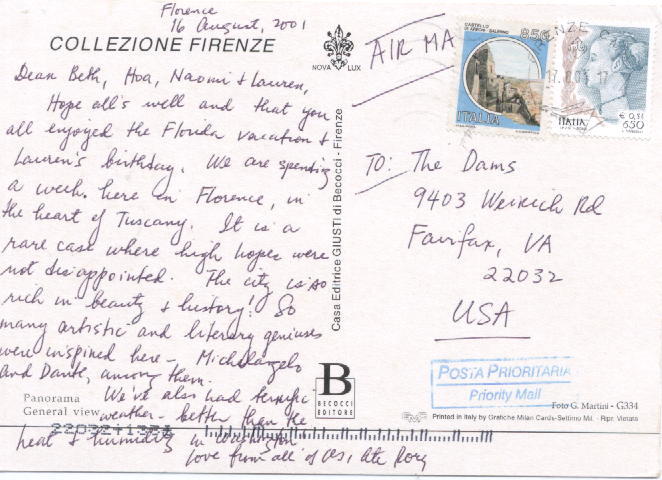 Florence
16 August, 2001
COLLEZIONE FIRENZE
NOVA LUX
AIR MA
CASTELLO
850
ITALIA
ITALIA
€ 0,34
650
Dear Beth, Hoa, Naomi & Lauren,
Hope all's well and that you
all enjoyed the Florida vacation &
Lauren's birthday. We are spending
a week here in Florence, in
the heart of Tuscany. It is a
rare case where high hopes were
not disappointed. The city is so
rich in beauty & history! So
many artistic and literary geniuses
were inspired here - Michelangelo
and Dante, among them.
We've also had terrific
weather - better than the
heat & humidity in Washington
love from all of us,
Rory
Casa Editrice GIUSTI di Becocci - Firenze
TO: The Dams
9403 Weirich Rd
Fairfax, VA
22032
USA
POSTA PRIORITARIA
Priority Mail
Panorama
General view
B
BECOCCI
EDITORE
Foto G. Martini - G334
Printed in Italy by Grafiche Milan Cards-Settimo Mil. - Ripr. Vietata